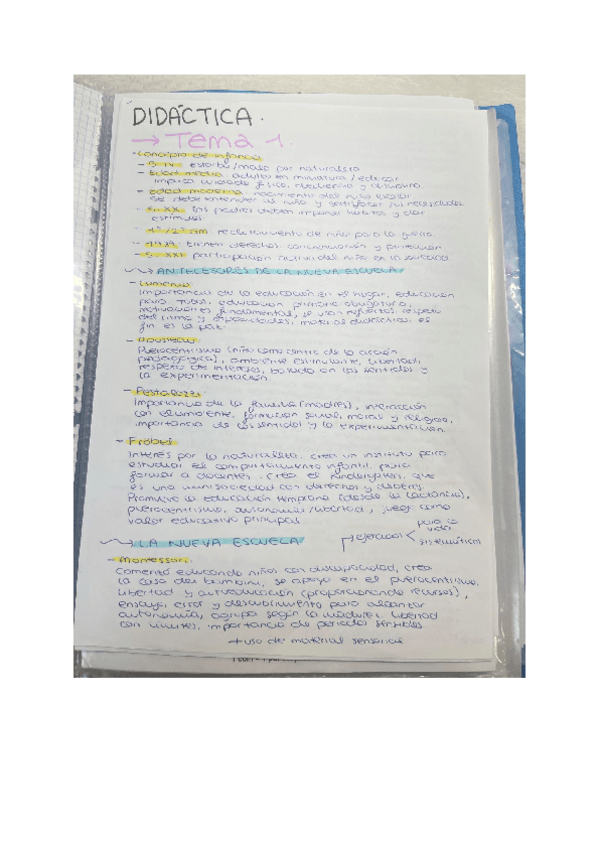 DIDÁCTICA.
→ Tema 1.
· Concepto de infancia
- S. IV: estorbo/malo por naturaleza
- Edad media: adultos en miniatura / educar
impera cuidado físico, obediencia y disciplina
- Edad moderna: nacimiento del niño escolar
se debe entender al niño y satisfacer sus necesidades
- S. XX: los padres deben imponer hábitos y dar
estímulos
- 1ª/2ª GM: reclutamiento de niños para la guerra
- tienen derechos, y protección
- S. XXI: participación del niño en la sociedad
ANTECESORES DE LA NUEVA ESCUELA
- Comenio:
Importancia de la educación en el hogar, educación
para todos, educación primaria obligatoria,
motivaciones fundamentales, se usan refuerzos, respeto
del ritmo y capacidades, material didáctico. el
fin es la paz.
-
Puerocentrismo (niño como centro de la acción
pedagógica), ambiente estimulante, libertad,
respeto de intereses, basado en los sentidos y
la experimentación.
- Pestalozzi:
Importancia de la familia (madres), interacción
con el ambiente, formación social, moral y religiosa,
importancia de los sentidos y la experimentación.
- Fröbel
Interés por la naturaleza. crea un instituto para
estudiar el comportamiento infantil, para
formar a docentes. Crea el kindergarten, que
es una minisociedad con derechos y deberes.
Promueve la educación temprana (desde la lactancia),
puerocentrismo, autonomía/libertad, juego como
valor educativo principal.
LA NUEVA ESCUELA
ejercicios
para la
vida
sistemáticos
- Montessori:
Comenzó educando niños con discapacidad, crea
la casa dei bambini, se apoya en el puerocentrismo,
libertad y autoeducación (proporcionando recursos),
ensayo, error y descubrimiento para alcanzar
autonomía, agrupa según la madurez, libertad
con límites, importancia de periodos sensibles
+ uso de material sensorial